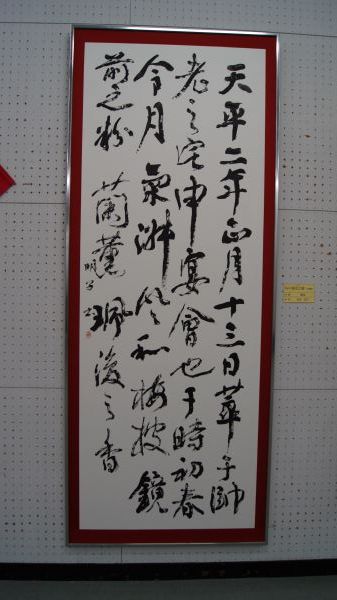 天平二年正月十三日萃于帥
老之宅申宴會也于時初春
令月氣淑風和梅披鏡
前之粉蘭薫珮後之香